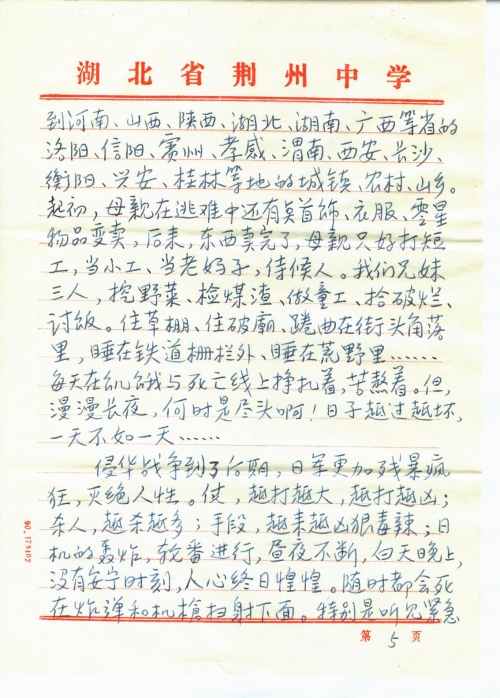 湖北省荆州中学
到河南、山西、陕西、湖北、湖南、广西等省的
洛阳、信阳、赛州、孝感、渭南、西安、长沙、
衡阳、兴安、桂林等地的城镇、农村、山乡。
起初，母亲在逃难中还有点首饰、衣服、零星
物品变卖，后来，东西卖完了，母亲只好打短
工，当小工、当老妈子，侍候人。我们兄妹
三人，挖野菜、检煤渣、做童工、拾破烂、
讨饭。住草棚、住破庙、踡曲在街头角落
里，睡在铁道栅栏外、睡在荒野里……
每天在饥饿与死亡线上挣扎着，苦熬着。但，
漫漫长夜，何时是尽头啊！日子越过越坏，
一天不如一天……
侵华战争到了后期，日军更加残暴疯
狂，灭绝人性。仗，越打越大，越打越凶；
杀人，越杀越多；手段，越来越凶狠毒辣；日
机的轰炸，轮番进行，昼夜不断，白天晚上，
没有安宁时刻，人心终日惶惶。随时都会死
在炸弹和机枪扫射下面。特别是听见紧急
第5页